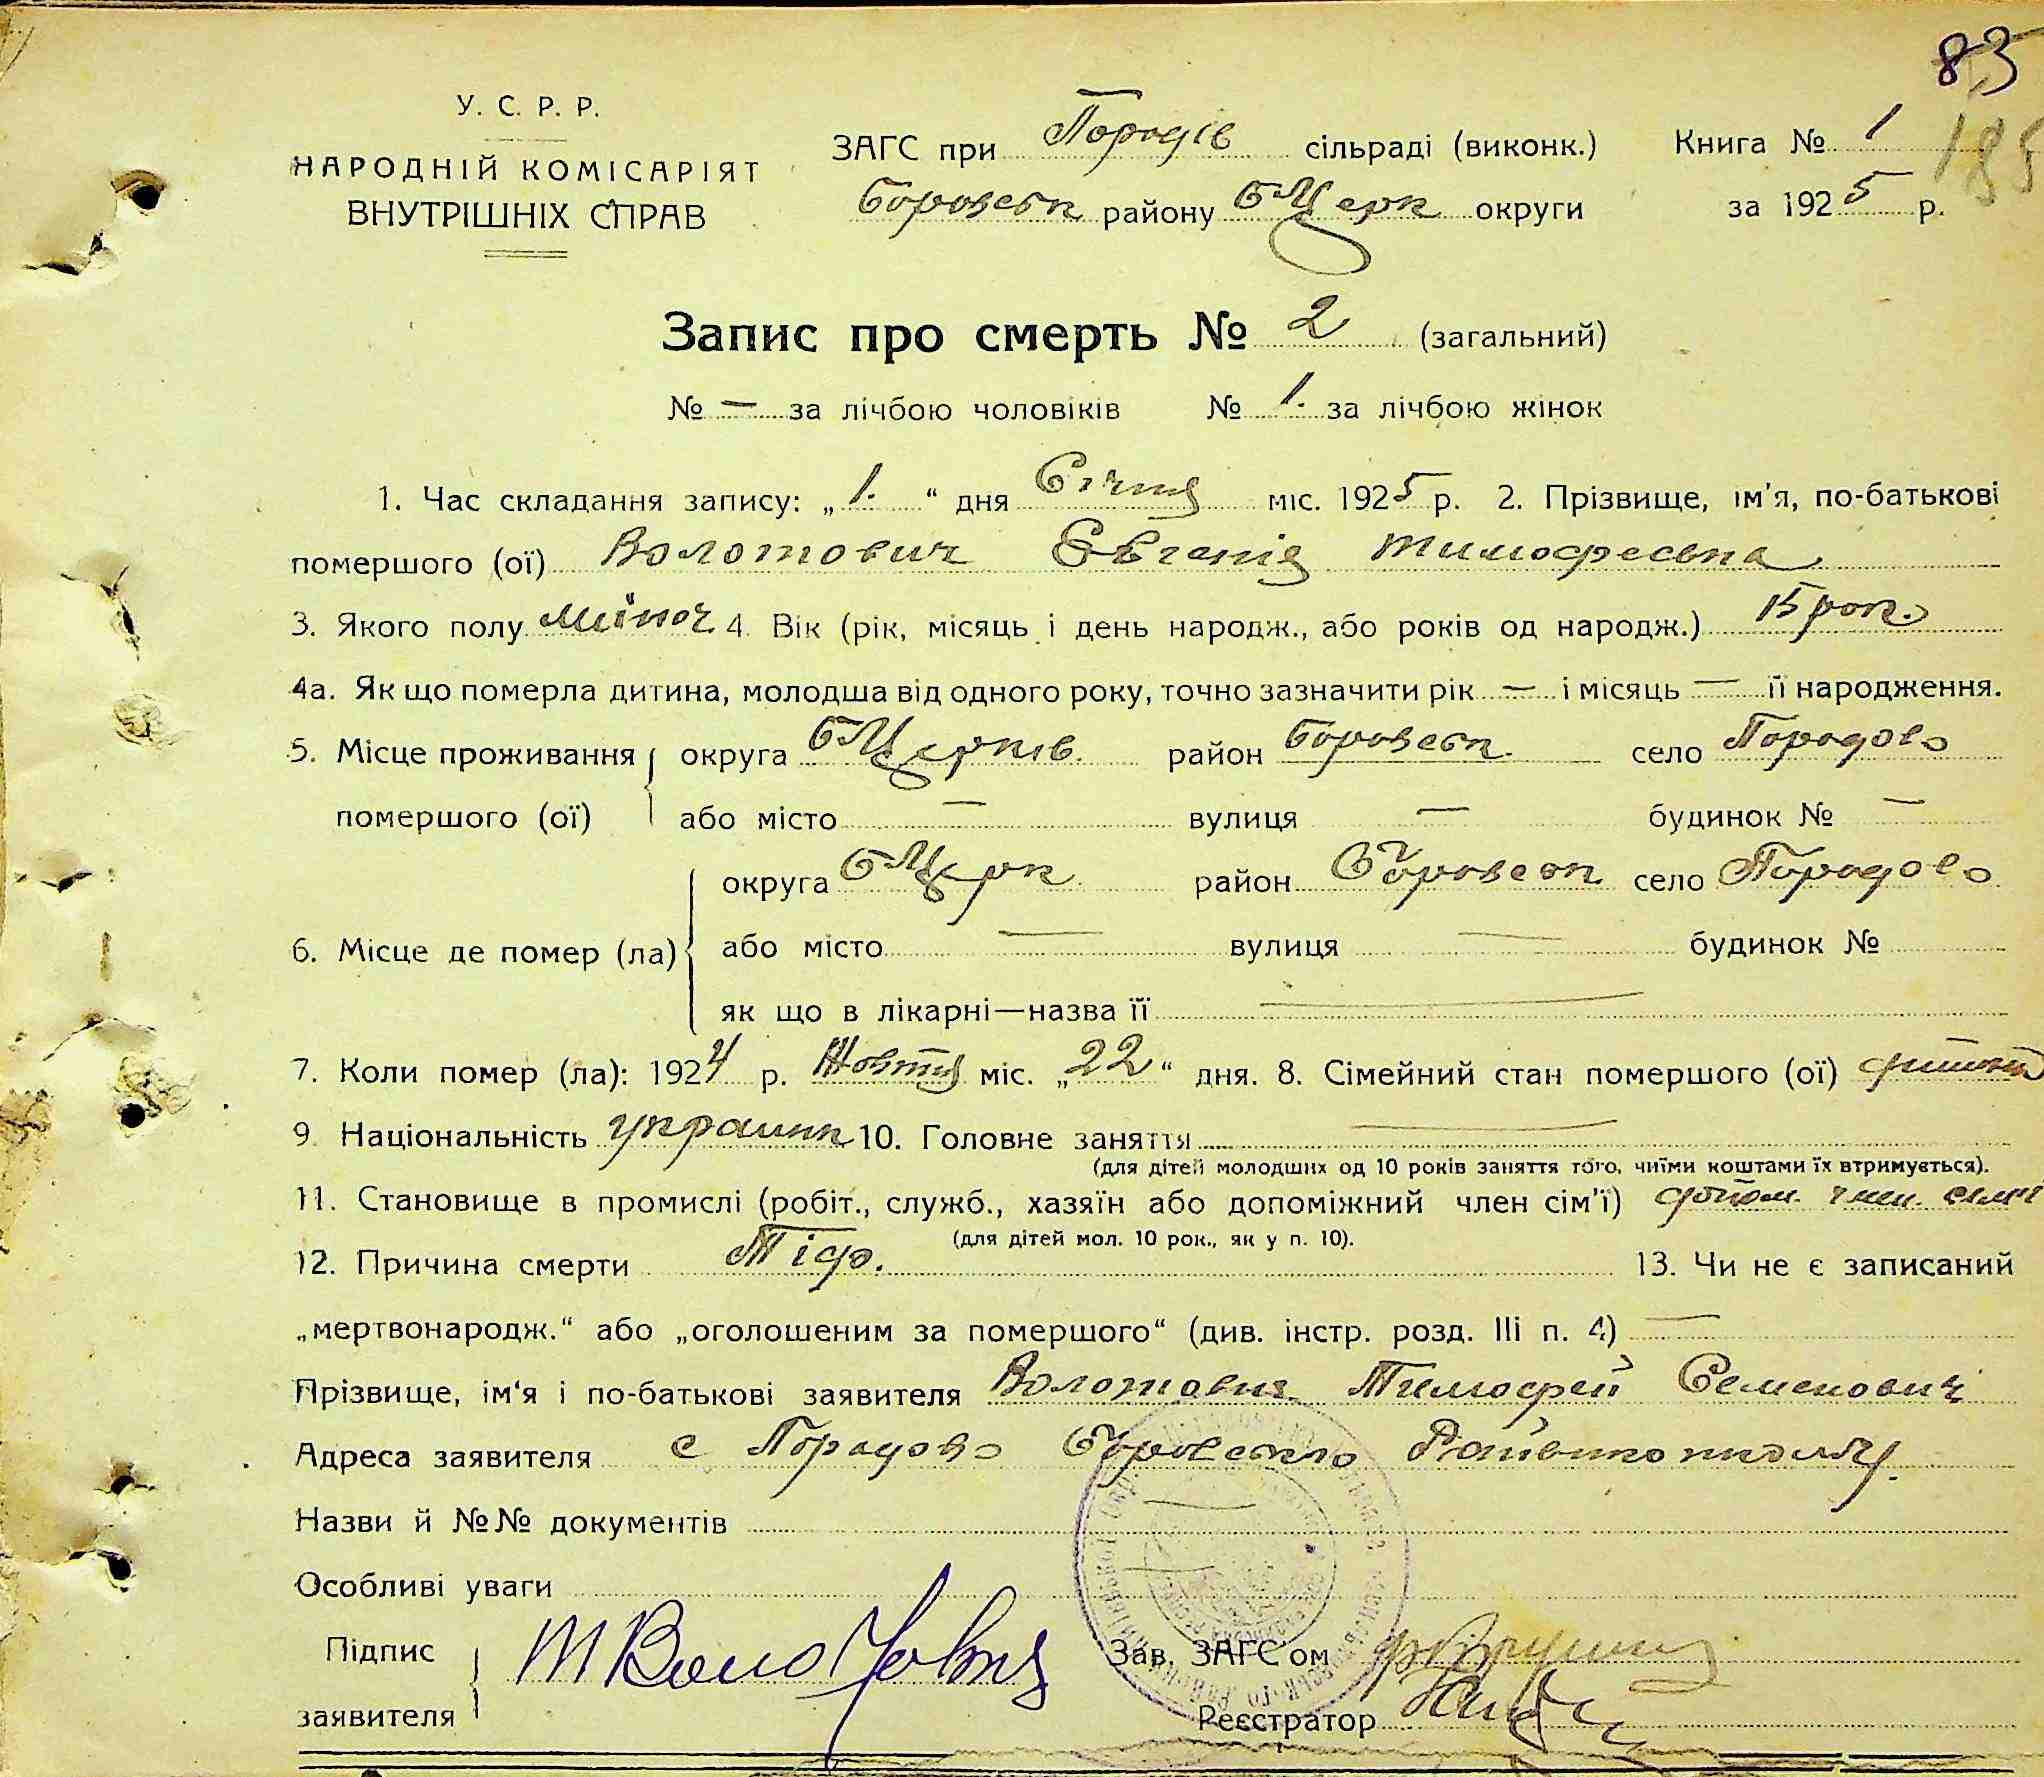 83
185
У. С. Р. Р.
НАРОДНІЙ КОМІСАРІЯТ
ВНУТРІШНІХ СПРАВ
ЗАГС при Городів сільраді (виконк.) Книга № 1
районy БЦерк округи за 1925 р.
Запис про смерть № 2 (загальний)
№ — за лічбою чоловіків № 1. за лічбою жінок
1. Час складання запису: „1.“ дня Січня міс. 1925 р. 2. Прізвище, ім'я, по-батькові
помершого (ої) Волотович Євгенія Тимофеевна
3. Якого полу жіноч 4. Вік (рік, місяць і день народж., або років од народж.) 15 рок.
4а. Як що померла дитина, молодша від одного року, точно зазначити рік — і місяць — її народження.
5. Місце проживання округа БЦерків. район село Городово
помершого (ої) або місто — вулиця — будинок № —
округа БЦерк район село Городово
6. Місце де помер (ла) або місто — вулиця — будинок №
як що в лікарні—назва її —
7. Коли помер (ла): 1924 р. Жовтня міс. „22“ дня. 8. Сімейний стан помершого (ої) дитина
9. Національність україни 10. Головне заняття —
(для дітей молодших од 10 років заняття того, чиїми коштами їх втримується).
11. Становище в промислі (робіт., служб., хазяїн або допоміжний член сім'ї) допом. член. сім'ї
(для дітей мол. 10 рок., як у п. 10).
12. Причина смерти Тіф. 13. Чи не є записаний
„мертвонародж.“ або „оголошеним за помершого“ (див. інстр. розд. III п. 4) —
Прізвище, ім'я і по-батькові заявителя Волотович Тимофей Семенович
Адреса заявителя с Городово
Назви й №№ документів —
Особливі уваги —
Підпис
заявителя Т Волотович
Зав. ЗАГС'ом
Реєстратор